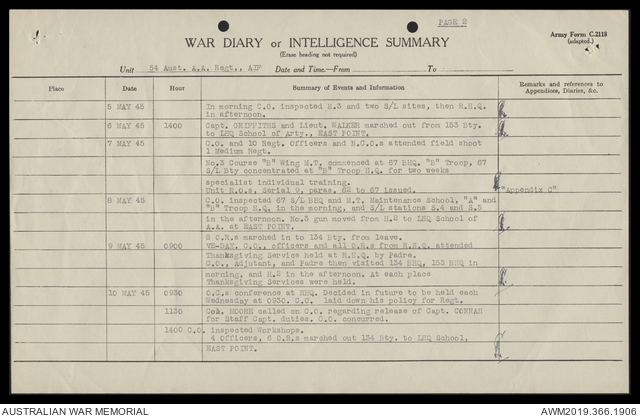 PAGE 2
Army Form C.2118
(adapted.)
WAR DIARY or INTELLIGENCE SUMMARY
(Erase heading not required)
Unit 54 Aust. A.A. Regt., AIF Date and Time.—From To
Place Date Hour Summary of Events and Information Remarks and references to Appendices, Diaries, &c.
5 MAY 45 In morning C.O. inspected H.3 and two S/L sites, then R.H.Q.
in afternoon.
6 MAY 45 1400 Capt. GRIFFITHS and Lieut. WALKER marched out from 153 Bty.
to LHQ School of Arty., EAST POINT.
7 MAY 45 C.O. and 10 Regt. Officers and N.C.O.s attended field shoot
1 Medium Regt.
No.3 Course "B" Wing M.T. commenced at 67 BHQ. "B" Troop, 67
S/L Bty concentrated at "B" Troop H.Q. for two weeks
specialist individual training.
Unit R.O.s, Serial 9, paras. 62 to 67 issued. "Appendix C"
8 MAY 45 C.O. inspected 67 S/L BHQ and M.T. Maintenance School, "A" and
"B" Troop H.Q. in the morning, and S/L stations S.4 and S.5
in the afternoon. No.3 gun moved from H.2 to LHQ School of
A.A. at EAST POINT.
2 O.R.s marched in to 134 Bty. from leave.
9 MAY 45 0900 VE-DAY. C.O., officers and all O.R.s from R.H.Q. attended
Thanksgiving Service held at R.H.Q. by Padre.
C.O., Adjutant, and Padre then visited 134 BHQ, 153 BHQ in
morning, and H.2 in the afternoon. At each place
Thanksgiving Services were held.
10 MAY 45 0930 O.C.s conference at RHQ. Decided in future to be held each
Wednesday at 0930. C.O. laid down his policy for Regt.
1130 Col. MOORE called on C.O. regarding release of Capt.
for Staff Capt. duties. C.O. concurred.
1400 C.O. inspected Workshops.
4 Officers, 6 O.R.s marched out 134 Bty. to LHQ School,
EAST POINT.
AUSTRALIAN WAR MEMORIAL
AWM2019.366.1906